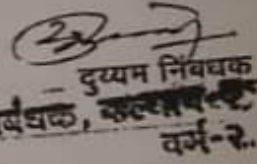 दुय्यम निबंधक
बंधक,
वर्ग-२.